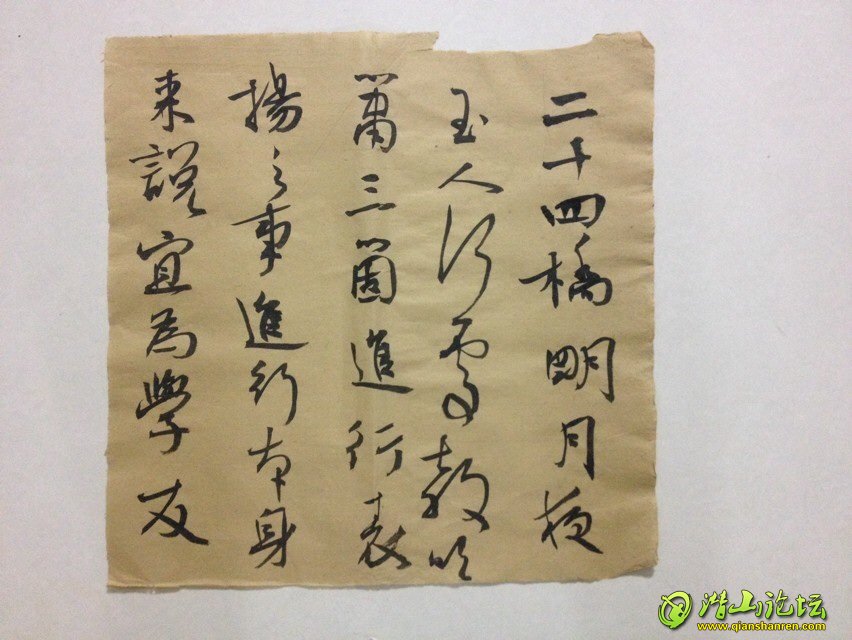 二十四橋明月夜
玉人何處教吹
簫三箇進行表
揚之事進行本身
来說宜為學友
潜山论坛
www.qianshanren.com